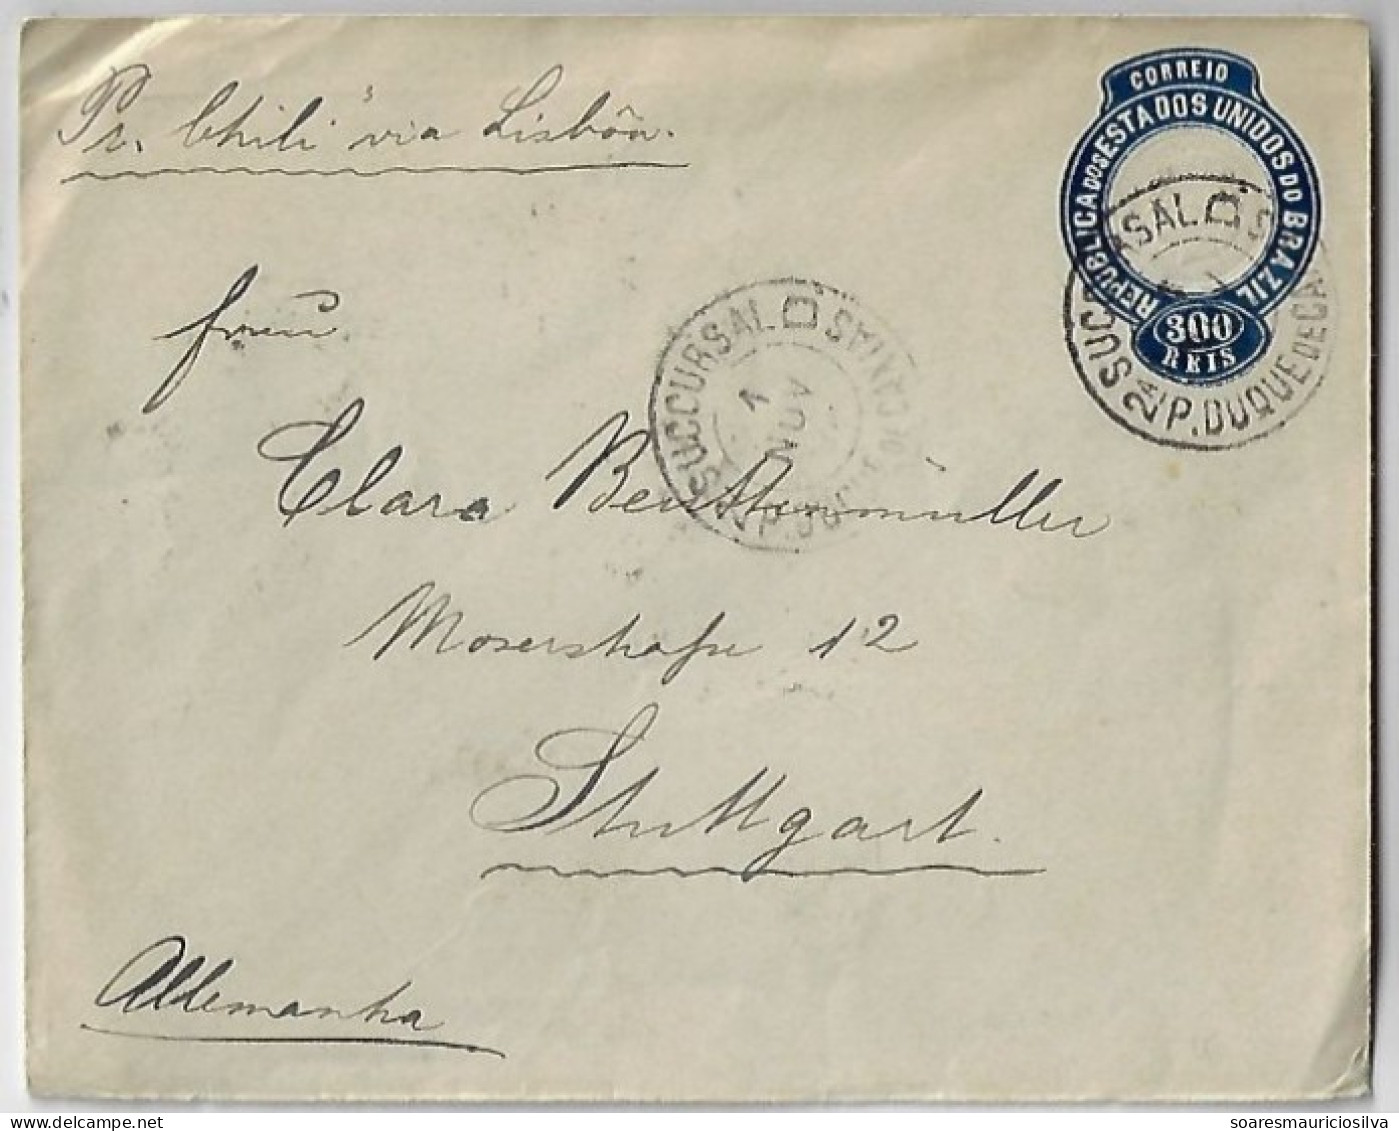 Pr. "Chili" via Lisbôa.
CORREIO
REPUBLICA DOS ESTADOS UNIDOS DO BRAZIL
300
REIS
SUCCURSAL DO
2ª P. DUQUE DE CAXIAS
SUCCURSAL D S
1
NOV
P. DUQUE DE CAXIAS
Frau
Clara Beuttenmüller
Moserstraße 12
Stuttgart.
Allemanha
soaresmauriciosilva